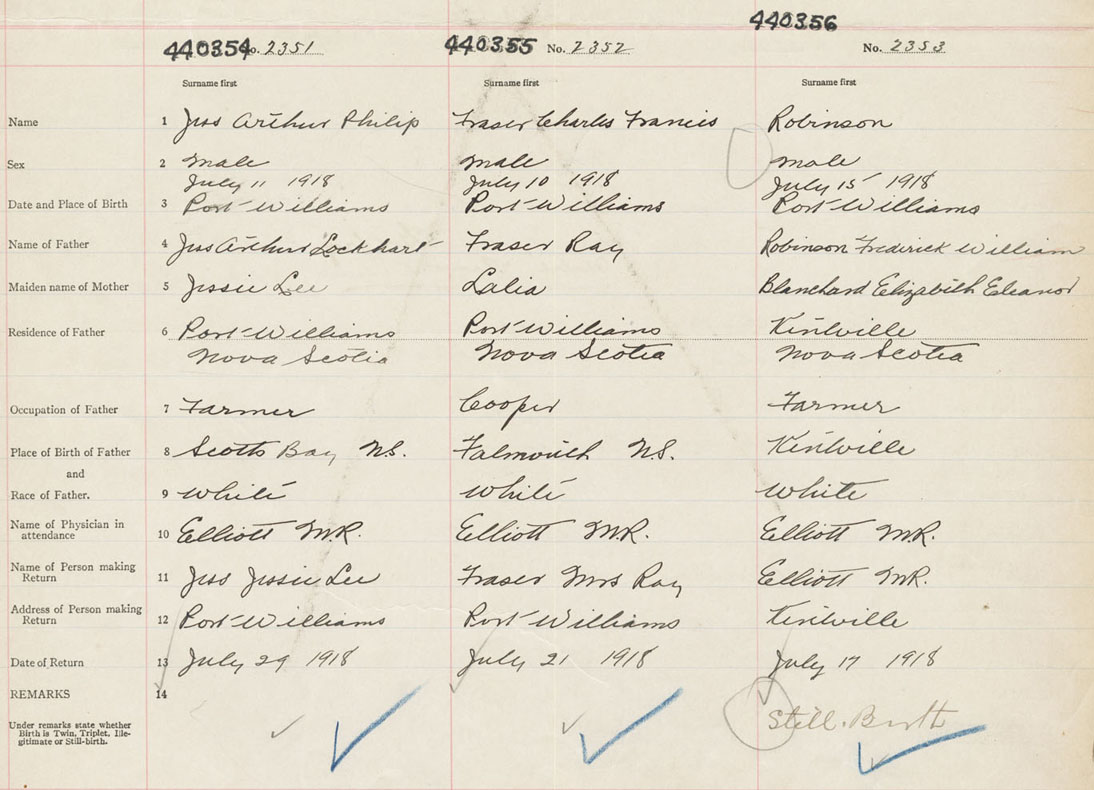 440354 No. 2351 440355 No. 2352 440356 No. 2353
Surname first Surname first Surname first
Name 1 Jess Arthur Philip Fraser Charles Francis Robinson
Sex 2 Male Male Male
July 11 1918 July 10 1918 July 15 1918
Date and Place of Birth 3 Port Williams Port Williams Port Williams
Name of Father 4 Jess Arthur Lockhart Fraser Ray Robinson Frederick William
Maiden name of Mother 5 Jessie Lee Lalia Blanchard Elizabeth Eleanor
Residence of Father 6 Port Williams Port Williams Kentville
Nova Scotia Nova Scotia Nova Scotia
Occupation of Father 7 Farmer Cooper Farmer
Place of Birth of Father 8 Scotts Bay N.S. Falmouth N.S. Kentville
and
Race of Father. 9 White White White
Name of Physician in attendance 10 Elliott M.R. Elliott M.R. Elliott M.R.
Name of Person making Return 11 Jess Jessie Lee Fraser Mrs Ray Elliott M.R.
Address of Person making Return 12 Port Williams Port Williams Kentville
Date of Return 13 July 29 1918 July 21 1918 July 17 1918
REMARKS 14
Under remarks state whether
Birth is Twin, Triplet, Ille-
gitimate or Still-birth.
Still. Birth